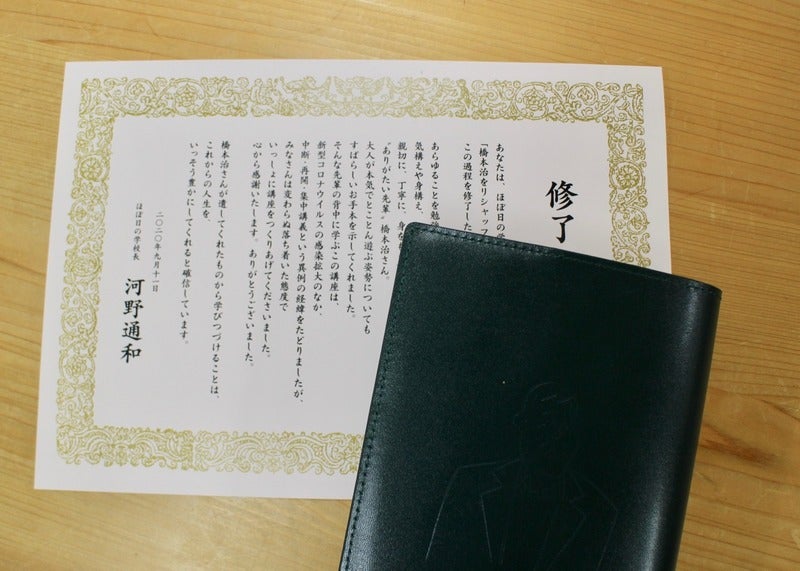 修了
あなたは、ほぼ日の
「橋本治をリシャッフ
この過程を修了した
あらゆることを勉
気構えや身構え、
親切に、丁寧に、身を
“ありがたい先輩”橋本治さん。
大人が本気でとことん遊ぶ姿勢についても
すばらしいお手本を示してくれました。
そんな先輩の背中に学ぶこの講座は、
新型コロナウイルスの感染拡大のなか、
中断・再開・集中講義という異例の経緯をたどりましたが、
みなさんは変わらぬ落ち着いた態度で
いっしょに講座をつくりあげてくださいました。
心から感謝いたします。ありがとうございました。
橋本治さんが遺してくれたものから学びつづけることは、
これからの人生を、
いっそう豊かにしてくれると確信しています。
二〇二〇年九月十一日
ほぼ日の学校長
河野通和